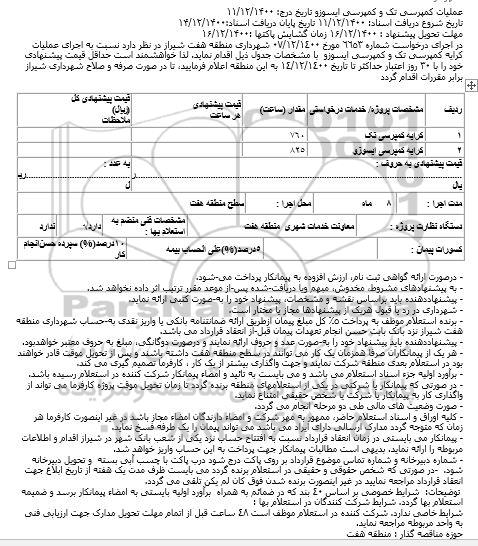 عملیات کمپرسی تک و کمپرسی ایسوزو تاریخ درج: ۱۱/۱۲/۱۴۰۰
تاریخ شروع دریافت اسناد: ۱۱/۱۲/۱۴۰۰ تاریخ پایان دریافت اسناد:۱۴/۱۲/۱۴۰۰
مهلت تحویل پیشنهاد : ۱۶/۱۲/۱۴۰۰ زمان گشایش پاکتها :۱۶/۱۲/۱۴۰۰
در اجرای درخواست شماره ۶۶۵۳ مورخ ۰۷/۱۲/۱۴۰۰ شهرداری منطقه هفت شیراز در نظر دارد نسبت به اجرای عملیات
کرایه کمپرسی تک و کمپرسی ایسوزو با مشخصات جدول ذیل اقدام نماید. لذا خواهشمند است حداقل قیمت پیشنهادی
خود را با ۳۰ روز اعتبار حداکثر تا تاریخ ۱۴/۱۲/۱۴۰۰ به این منطقه اعلام فرمایید، تا در صورت صرفه و صلاح شهرداری شیراز
برابر مقررات اقدام گردد
ردیف مشخصات پروژه/ خدمات درخواستی مقدار (ساعت) قیمت پیشنهادی هر ساعت قیمت پیشنهادی کل (ریال) ملاحظات
۱ کرایه کمپرسی تک ۷۶۰
۲ کرایه کمپرسی ایسوزو ۸۲۵
قیمت پیشنهادی به حروف : ریال به عدد : ریال
مدت اجرا : ۸ ماه محل اجرا : سطح منطقه هفت
دستگاه نظارت پروژه : معاونت خدمات شهری منطقه هفت مشخصات فنی منضم به استعلام بها : دارد ندارد
کسورات پیمان : ۵درصد(%)علی الحساب بیمه ۱۰درصد(%) سپرده حسن‌انجام کار
- درصورت ارائه گواهی ثبت نام، ارزش افزوده به پیمانکار پرداخت می‌شود.
- به پیشنهادهای مشروط، مخدوش، مبهم ویا دریافت‌شده پس‌از موعد مقرر ترتیب اثر داده نخواهد شد.
- پیشنهاددهنده باید براساس نقشه و مشخصات، پیشنهاد خود را به‌صورت کتبی ارائه نماید.
- شهرداری در رد یا قبول هریک از پیشنهادها مجاز یا مختار است.
- برنده استعلام موظف به پرداخت ۵% کل مبلغ پیمان ازطریق ارائه ضمانتنامه بانکی یا واریز نقدی به‌حساب شهرداری منطقه
هفت شیراز نزد بانک بابت حسن انجام تعهدات پیمان قبل‌از انعقاد قرارداد می باشد.
- پیشنهاددهنده باید پیشنهاد خود را به‌صورت عدد و حروف ارائه نمایند و درصورت دوگانگی، مبلغ به حروف معتبر خواهدبود.
- هر یک از پیمانکاران صرفا همزمان یک کار می توانند در سطح منطقه هفت داشته باشند و پس از تحویل موقت قادر خواهند
بود در استعلام بعدی منطقه شرکت نمایند و جهت واگذاری بیشتر از یک کار ، کارفرما تصمیم گیری می کند.
- برآورد اولیه جزء اسناد استعلام می باشد و می بایست به تائید و امضاء پیمانکار شرکت کننده در استعلام رسیده باشد.
- در صورتی که پیمانکار یا شرکتی در یکی از استعلامهای منطقه برنده گردد تا زمان تحویل موقت پروژه کارفرما می تواند از
واگذاری کار به پیمانکار یا شرکت یا شخص حقیقی امتناع نماید.
- صورت وضعیت های مالی طی دو مرحله انجام می گردد.
- کلیه اوراق و اسناد استعلام حاضر، ممهور به مهر شرکت و امضاء دارندگان امضاء مجاز باشد در غیر اینصورت کارفرما هر
زمان که متوجه گردد مدارک ارسالی دارای ایراد می باشد می تواند پیمان را یک طرفه فسخ نماید.
- پیمانکار می بایستی در زمان انعقاد قرارداد نسبت به افتتاح حساب نزد یکی از شعب بانک شهر در شیراز اقدام و اطلاعات
مربوطه را ارائه نماید. بدیهی است مطالبات پیمانکار جهت پرداخت به این حساب واریز خواهد شد.
- شماره دبیرخانه و شماره تماس موضوع قرارداد بر روی پاکت درج شود درب پاکت با چسب آبی بسته و تحویل دبیرخانه
شود. -در صورتی که شخص حقوقی و حقیقی در استعلام برنده گردد می بایست ظرف مدت یک هفته از تاریخ ابلاغ جهت
انعقاد قرارداد مراجعه نمایید در غیر اینصورت برنده شدن فوق کان لم یکن تلقی می گردد.
توضیحات: شرایط خصوصی بر اساس ۴۰ بند که در ضمائم به همراه برآورد اولیه بایستی به امضاء پیمانکار برسد و ضمیمه
استعلام بها گردد. شرایط شرکت کنندگان در استعلام بها :
شرایط خاصی ندارد. شرکت کننده در استعلام موظف است ۴۸ ساعت قبل از اتمام مهلت تحویل مدارک جهت ارزیابی فنی
به واحد مربوطه مراجعه نماید.
حوزه مناقصه گذار : منطقه هفت